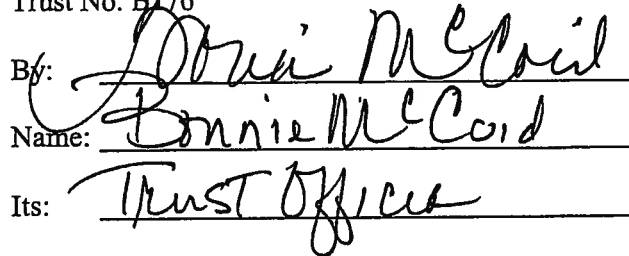 Trust No. B176
By: Bonnie McCoid
Name: Bonnie McCoid
Its: Trust Officer